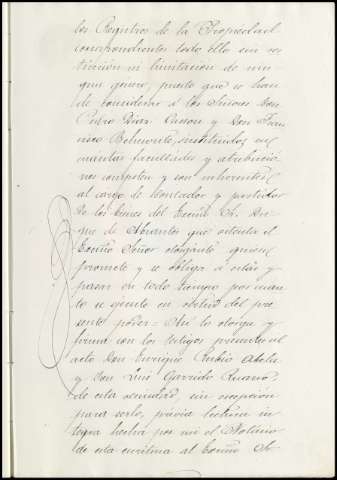 los Registros de la Propiedad
correspondientes todo ello sin res
tricción ni limitacion de nin
gun género, puesto que se han
de considerar á los Señores Don
Pedro Diaz y Don Fran
cisco Belmonte, instituidos en
cuantas facultades y atribucio
nes competen y son inherentes
al cargo de Contador y partidor
de los bienes del Excmo. Sr. Du
que de Abrantes que ostenta el
Excmo Señor otorgante quien
promete y se obliga á estar y
pasar en todo tiempo por cuan
to se ejecute en virtud del pre
sente poder = Asi lo otorga y
firma con los testigos presentes al
acto Don Enrique Rubio
y Don Luis Garrido
de esta vecindad, sin excepcion
para serlo, prévia lectura in
tegra hecha por mi el Notario
de esta escritura al Excmo Se